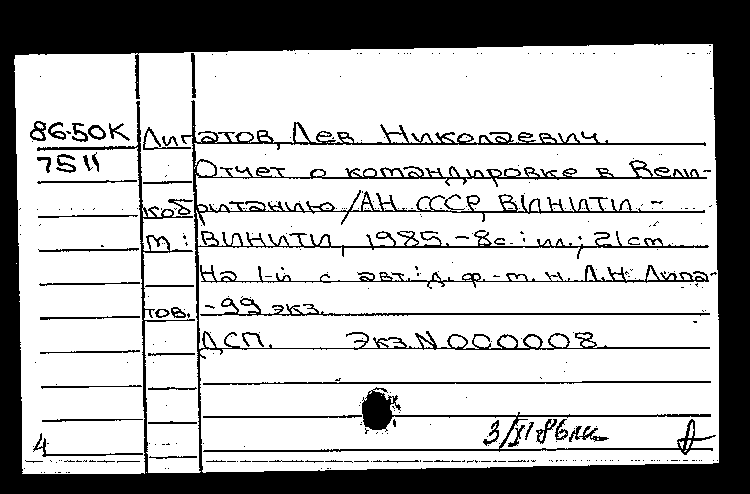 86-50К Липатов, Лев Николаевич.
7511 Отчет о командировке в Вели-
кобританию /АН СССР, ВИНИТИ. -
М: ВИНИТИ, 1985. - 8с.: ил.; 21см
На 1-й с авт.: д. ф.-м. н. Л.Н. Липа-
тов. - 99 экз.
ДСП. Экз. N 000008.
3/XI-86
4